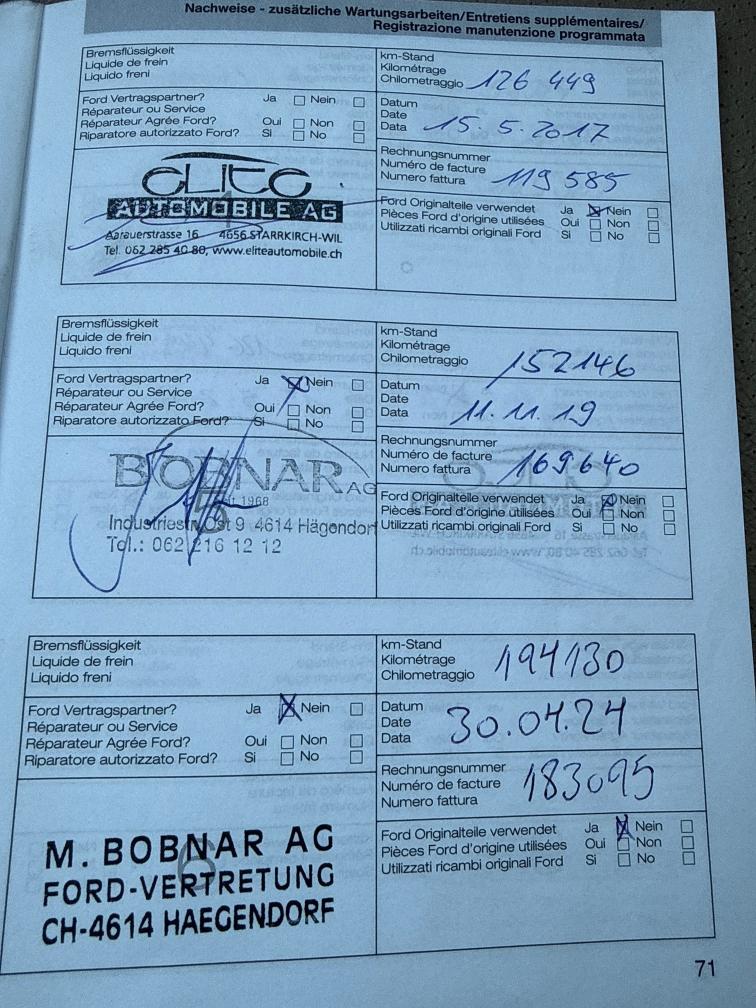 Nachweise - zusätzliche Wartungsarbeiten/Entretiens supplémentaires/
Registrazione manutenzione programmata
Bremsflüssigkeit
Liquide de frein
Liquido freni
km-Stand
Kilométrage
Chilometraggio 126 449
Ford Vertragspartner? Ja Nein
Réparateur ou Service
Réparateur Agrée Ford? Oui Non
Riparatore autorizzato Ford? Si No
Datum
Date
Data 15.5.2017
Rechnungsnummer
Numéro de facture
Numero fattura 119 585
ELITE
AUTOMOBILE AG
Aarauerstrasse 16 4656 STARRKIRCH-WIL
Tel. 062 285 40 80, www.eliteautomobile.ch
Ford Originalteile verwendet Ja Nein
Pièces Ford d'origine utilisées Oui Non
Utilizzati ricambi originali Ford Si No
Bremsflüssigkeit
Liquide de frein
Liquido freni
km-Stand
Kilométrage
Chilometraggio 152146
Ford Vertragspartner? Ja Nein
Réparateur ou Service
Réparateur Agrée Ford? Oui Non
Riparatore autorizzato Ford? Si No
Datum
Date
Data 11.11.19
Rechnungsnummer
Numéro de facture
Numero fattura 169640
BOBNAR AG
seit 1968
5
Industriestr. Ost 9 4614 Hägendorf
Tel.: 062 216 12 12
Ford Originalteile verwendet Ja Nein
Pièces Ford d'origine utilisées Oui Non
Utilizzati ricambi originali Ford Si No
Bremsflüssigkeit
Liquide de frein
Liquido freni
km-Stand
Kilométrage
Chilometraggio 194130
Ford Vertragspartner? Ja Nein
Réparateur ou Service
Réparateur Agrée Ford? Oui Non
Riparatore autorizzato Ford? Si No
Datum
Date
Data 30.04.24
Rechnungsnummer
Numéro de facture
Numero fattura 183095
M. BOBNAR AG
6
FORD-VERTRETUNG
CH-4614 HAEGENDORF
Ford Originalteile verwendet Ja Nein
Pièces Ford d'origine utilisées Oui Non
Utilizzati ricambi originali Ford Si No
71